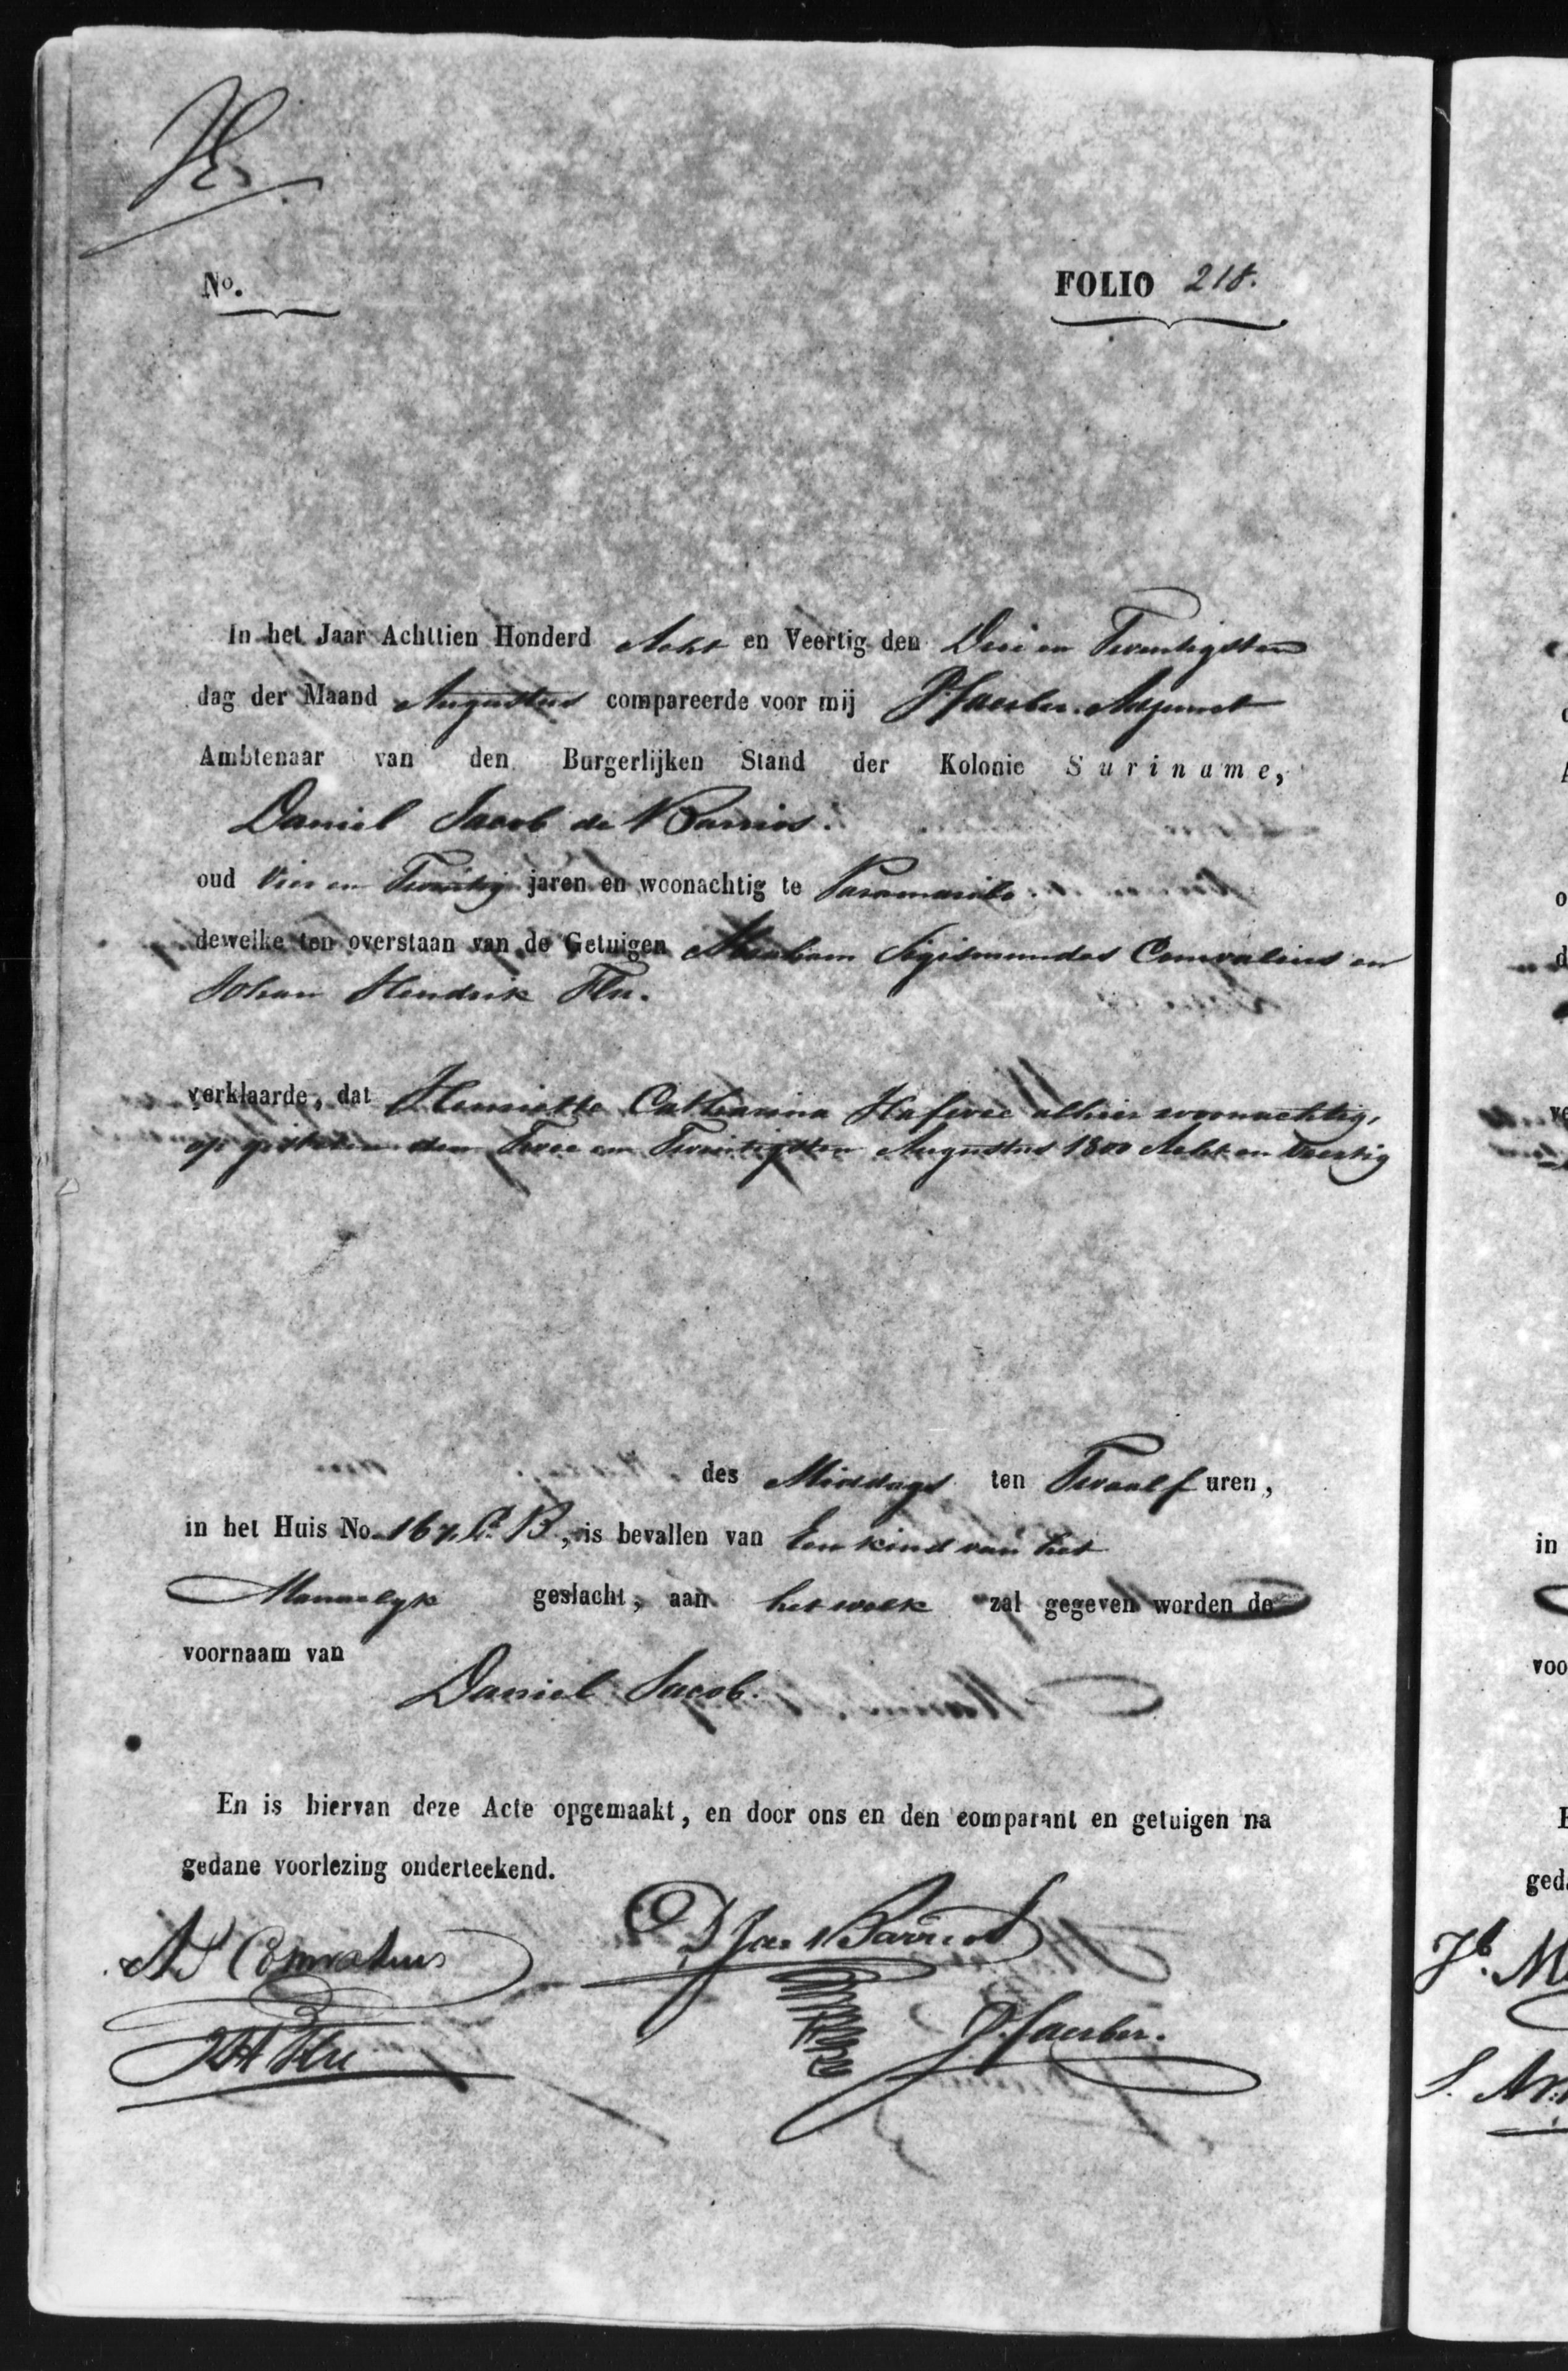 No.
FOLIO 218.
In het Jaar Achttien Honderd Acht en Veertig den Drie en Twentigsten
dag der Maand Augustus compareerde voor mij Adjunct
Ambtenaar van den Burgerlijken Stand der Kolonie Suriname,
Daniel Jacob de Barrios.
oud Vier en Twintig jaren en woonachtig te Paramaribo.
dewelke ten overstaan van de Getuigen Abraham Sigismundus Comvalius en
Johan Hendrik Flu.
verklaarde, dat Henriette Catharina alhier woonachtig,
op gisteren den Twee en Twintigsten Augustus 1800 Acht en Veertig
des Middags ten Twaalf uren,
in het Huis No. B, is bevallen van Een kind van het
Mannelyk geslacht, aan het welk zal gegeven worden de
voornaam van
Daniel Jacob.
En is hiervan deze Acte opgemaakt, en door ons en den comparant en getuigen na
gedane voorlezing onderteekend.
AS Comvalius
Barrios
JH Flu